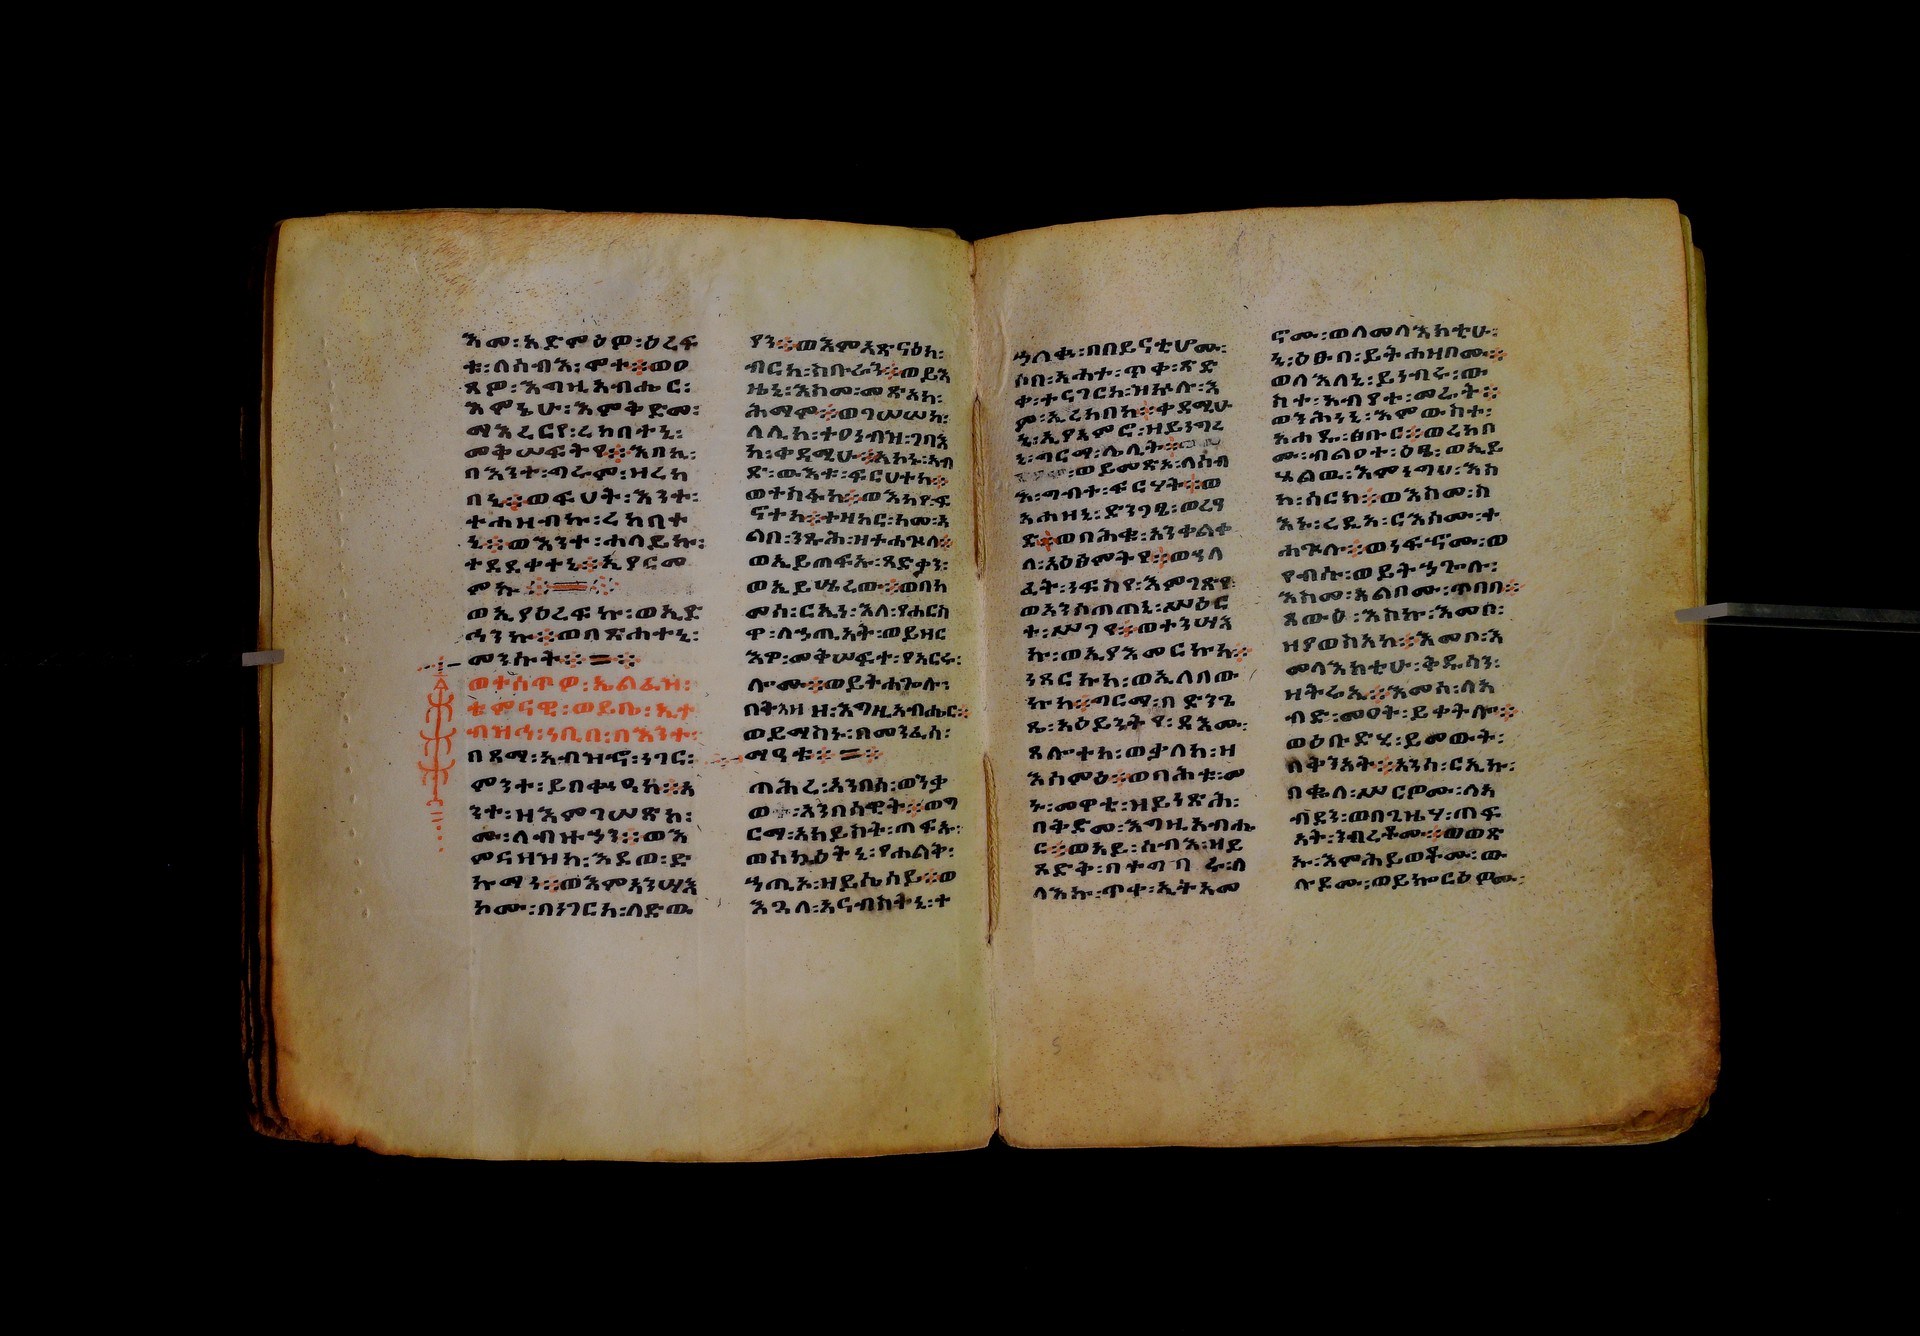 እመ፡አድምዕዎ፡ዕረፍ
ቱ፡ለሰብእ፡ሞተ፨ወዐ
ጸዎ፡እግዚአብሔር፡
እሞኒሁ፡እምቅድመ፡
ማእረርየ፡ረከበተኒ፡
መቅሠፍትየ፨እበኪ፡
በእንተ፡ግሩም፡ዘረከ
በኒ፨ወፍሀት፡እንተ፡
ተሐዘብኩ፡ረከበተ
ኒ፨ወእንተ፡ሐለይኩ፡
ተደደቀተኒ፨ኢያርመ
ምኩ፨
ወኢያዕረፍኩ፡ወኢድ
ኅንኩ፨ወበጽሐተኒ፡
መንሱት፨
ወተሰጥዎ፡ኤልፌዝ፡
ቴምናዊ፡ወይቤ፡ኢተ
ብዝኅ፡ነቢበ፡በእንተ፡
በጻማ፡አብዝኆ፡ነገር፡
ምንተ፡ይበቍዓከ፨አ
ንተ፡ዘእምገሠጽከ፡
ሙ፡ለብዙኃን፨ወእ
ምናዝዝከ፡እደወ፡ድ
ኩማን፨ወእምአንሣእ
ከሙ፡በነገርከ፡ለድዉ
ያን፨ወእምአጽናዕከ፡
ብርከ፡ስቡራን፨ወይእ
ዜኒ፡እስመ፡መጽአከ፡
ሕማም፨ወገሠሠከ፡
ለሊከ፡ተዐንብዝ፡ገባእ
ከ፡ቀዳሚሁ፨አኮኑ፡አብ
ድ፡ውእቱ፡ፍርሀተከ፨
ወተስፋከ፨ወእከየ፡ፍ
ኖተከ፨ተዘከር፡ከመ፡አ
ልቦ፡ንጹሕ፡ዘተሐጕለ፨
ወኢይጠፍኡ፡ጻድቃን፡
ወኢይሤረው፨ወበከ
መሰ፡ርኢነ፡እለ፡የሐርስ
ዋ፡ለኀጢአት፡ወይዘር
እዋ፡መቅሠፍተ፡የአርሩ፡
ሎሙ፨ወይትሐጐሉ፡
በትእዛዘ፡እግዚአብሔር፨
ወይማስኑ፡በመንፈሰ፡
መዓቱ፨
ጠሕረ፡አንበሳ፡ወንቃ
ወ፡አንበሳዊት፨ወግ
ርማ፡አከይስት፡ጠፍአ፡
ወሰኰዕትኒ፡የሐልቅ፡
ኀጢኦ፡ዘይሴሰይ፨ወ
እጓለ፡አናብስትኒ፡ተ
ኃለቁ፡በበይናቲሆሙ፡
ሶበ፡አሐተ፡ጥቀ፡ጽድ
ቀ፡ተናገርከ፡ዝኵሉ፡እ
ም፡ኢረከበከ፨ቀዳሚሁ
ኒ፡ኢያአምሮ፡ዘይነግረ
ኒ፡ግርማ፡ሌሊት፨
ወይመጽአ፡ለሰብ
እ፡ግብተ፡ፍርሃት፨ወ
አሐዘኒ፡ድንጋፄ፡ወረዓ
ድ፨ወበሕቁ፡አንቀልቀ
ለ፡አዕፅምትየ፨ወኃለ
ፈት፡ነፍስየ፡እምገጽየ
ወአንሰጠጠኒ፡ሥዕር
ተ፡ሥጋየ፨ወተንሣእ
ኩ፡ወኢያእመርኩከ፨
ነጸርኩከ፡ወኢለበው
ኩከ፨ግርማ፡በድንጋ
ጼ፡አዕይንትየ፡ዳእሙ፡
ጸሎተከ፡ወቃለከ፡ዘ
እሰምዕ፨ወበሕቱ፡መ
ኑ፡መዋቲ፡ዝይነጽሕ፡
በቅድመ፡እግዚአብሔ
ር፨ወአይ፡ሰብእ፡ዝይ
ጸድቅ፡በተግባሩ፡ለ
ለእኩ፡ጥቀ፡ኢትአመ
ኖሙ፡ወለመላእክቲሁ፡
ኒ፡ዕፁበ፡ይትሐዘቦሙ፨
ወለእለኒ፡ይነብሩ፡ው
ስተ፡አብያተ፡መሬት፨
ወንሕነኒ፡እምውስተ፡
አሐዱ፡ፅቡር፨ወረከቦ
ሙ፡ብልዐተ፡ዕፄ፡ወኢይ
ሄልዉ፡እምነግህ፡እስ
ከ፡ሰርክ፨ወእስመ፡ስ
እኑ፡ረዲአ፡ርእሶሙ፡ተ
ሐጕሉ፨ወነፍኖሙ፡ወ
የብሱ፡ወይትኀጐሉ፡
እስመ፡አልቦሙ፡ጥበበ፨
ጸውዕ፡እስኩ፡እመቦ፡
ዘያወስአከ፨እመቦ፡እ
መላእክቲሁ፡ቅዱሳን፡
ዘትሬኢ፨እመሰ፡ለአ
ብድ፡መዐት፡ይቀትሎ፨
ወዕቡድሂ፡ይመውት፡
በቅንአት፨አንሰ፡ርኢኩ፡
በቈለ፡ሥርዎሙ፡ለአ
ብዳን፡ወበጊዜሃ፡ጠፍ
አት፡ንብረቶሙ፨ወወጽ
ኡ፡እምሕይወቶሙ፡ው
ሉዶሙ፡ወይኰርዕዎሙ፡